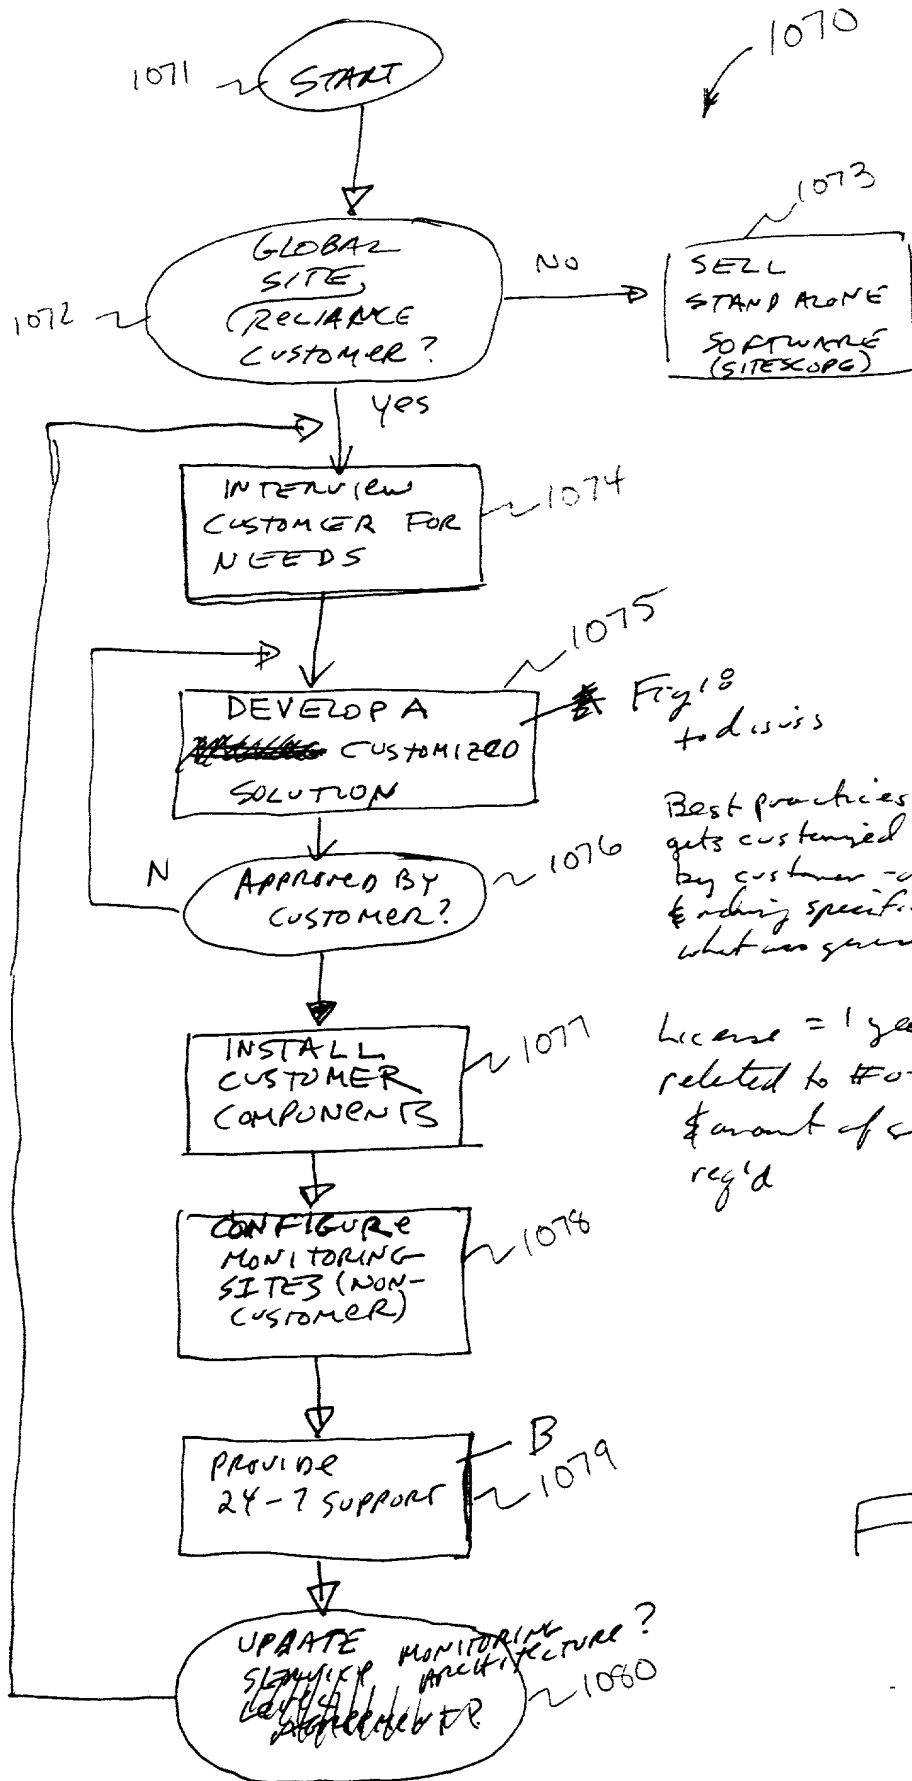 1070
1071
START
GLOBAL
SITE
RELIANCE
CUSTOMER?
1072
NO
1073
SELL
STAND ALONE
SOFTWARE
(SITESCOPE)
yes
INTERVIEW
CUSTOMER FOR
NEEDS
1074
1075
DEVELOP A
CUSTOMIZED
SOLUTION
Fig 18
to discuss
N
APPROVED BY
CUSTOMER?
1076
Best practices
gets customized
by customer
specific
what was
INSTALL
CUSTOMER
COMPONENTS
1077
License = 1
related to # of
& amount of
req'd
CONFIGURE
MONITORING
SITES (NON-
CUSTOMER)
1078
PROVIDE
24-7 SUPPORT
B
1079
F
UPDATE
MONITORING
ARCHITECTURE?
1080